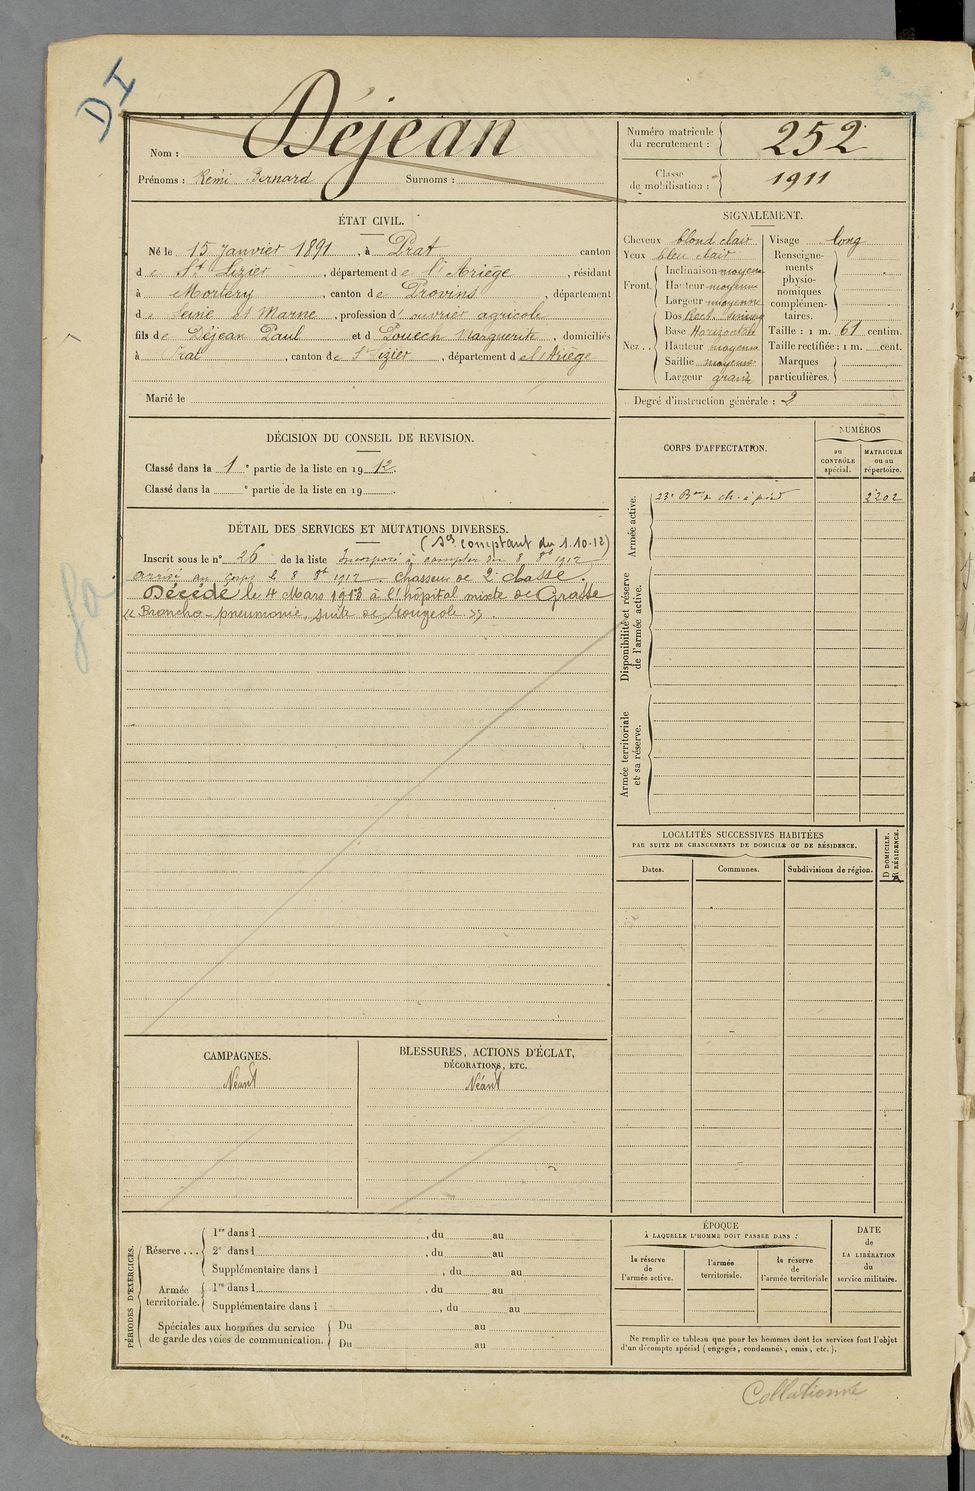 DI
Nom : Déjean
Prénoms : Rémi Bernard Surnoms :
Numéro matricule du recrutement : 252
Classe de mobilisation : 1911
ÉTAT CIVIL.
Né le 15 Janvier 1891, à Prat canton
de St Lizier, département de l'Ariège, résidant
à Mortery, canton de Provins, département
de Seine et Marne, profession d'ouvrier agricole
fils de Déjean Paul et d Douech Marguerite, domiciliés
à Prat, canton de St Lizier, département de l'Ariège
Marié le
SIGNALEMENT.
Cheveux blond clair
Yeux bleu clair
Front. Inclinaison moyenne
Hauteur moyenne
Largeur moyenne
Nez.. Dos Rect.
Base Horizontale
Hauteur moyenne
Saillie moyenne
Largeur grand
Visage long
Renseigne-
ments
physio-
nomiques
complémen-
taires.
Taille : 1 m. 61 centim.
Taille rectifiée : 1 m. cent.
Marques
particulières.
Degré d'instruction générale : 2
DÉCISION DU CONSEIL DE REVISION.
Classé dans la 1e partie de la liste en 1912.
Classé dans la e partie de la liste en 19 .
DÉTAIL DES SERVICES ET MUTATIONS DIVERSES.
(Ses comptant du 1.10-12)
Inscrit sous le n° 26 de la liste Incorporé à compter du 8 8bre 1912
arrivé au corps le 8 8bre 1912. Chasseur de 2e classe.
Décédé le 4 Mars 1913 à l'hôpital mixte de Grasse
« Broncho-pneumonie, suite de Rougeole. »
CORPS D'AFFECTATION.
NUMÉROS
au
CONTRÔLE
spécial.
MATRICULE
ou au
répertoire.
Armée active.
23e Bon de ch. à pied 2202
Disponibilité et réserve
de l'armée active.
Armée territoriale
et sa réserve.
LOCALITÉS SUCCESSIVES HABITÉES
PAR SUITE DE CHANGEMENTS DE DOMICILE OU DE RÉSIDENCE.
Dates. Communes. Subdivisions de région.
D DOMICILE.
R RÉSIDENCE.
CAMPAGNES.
Néant
BLESSURES, ACTIONS D'ÉCLAT,
DÉCORATIONS, ETC.
Néant
PÉRIODES D'EXERCICES.
Réserve ... 1re dans l , du au
2e dans l , du au
Supplémentaire dans l , du au
Armée
territoriale. 1re dans l , du au
Supplémentaire dans l , du au
Spéciales aux hommes du service
de garde des voies de communication. Du au
Du au
ÉPOQUE
À LAQUELLE L'HOMME DOIT PASSER DANS :
la réserve
de
l'armée active.
l'armée
territoriale.
la réserve
de
l'armée territoriale
DATE
de
LA LIBÉRATION
du
service militaire.
Ne remplir ce tableau que pour les hommes dont les services font l'objet
d'un décompte spécial (engagés, condamnés, omis, etc.).
Collationné